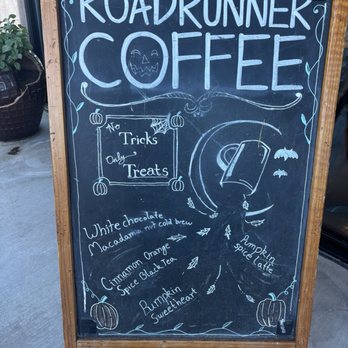 ROADRUNNER
COFFEE
No
Tricks
Only
Treats
White chocolate
Macadamia not cold brew
Cinnamon Orange
Spice Black Tea
Pumpkin
Sweetheart
Pumpkin
Spice Latte